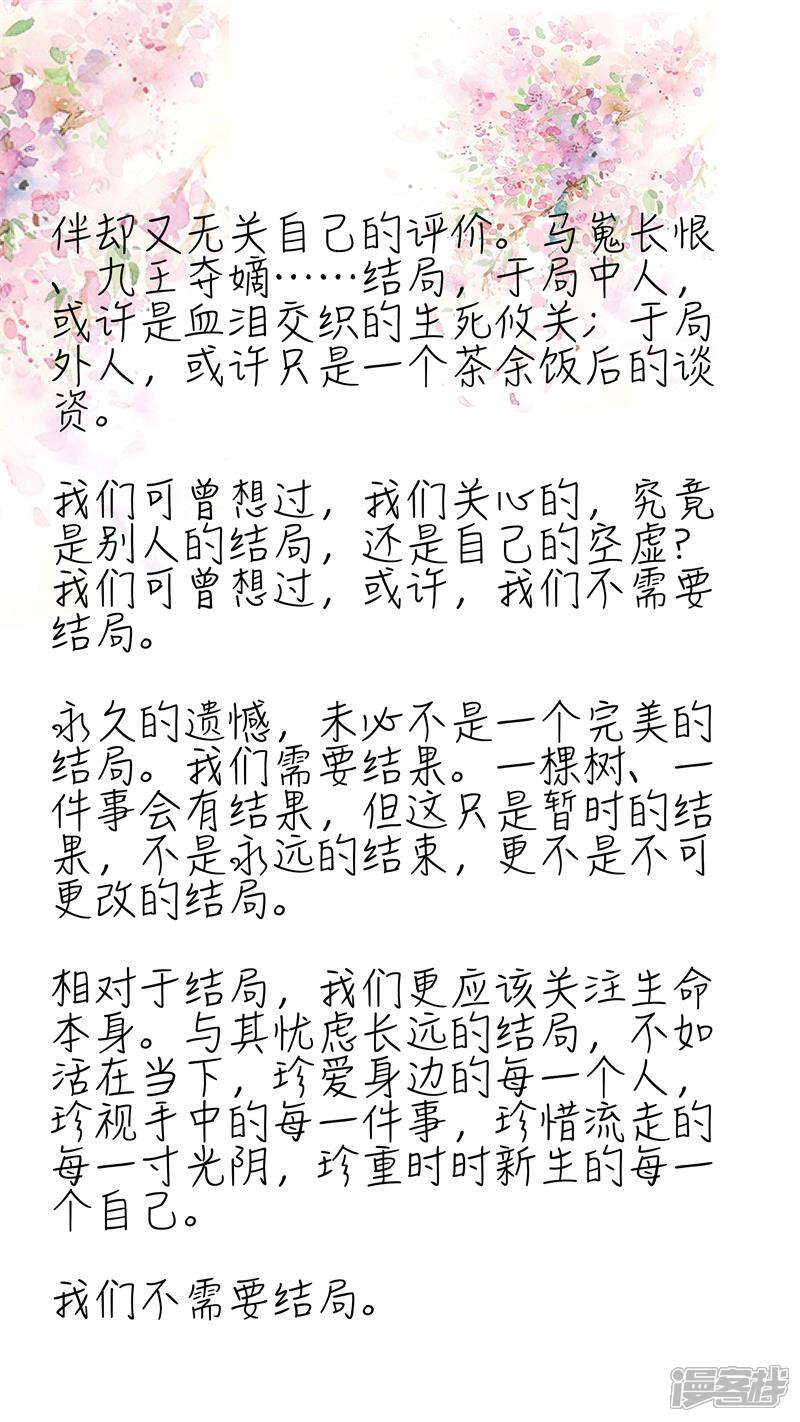 伴却又无关自己的评价。马嵬长恨
、九王夺嫡……结局，于局中人，
或许是血泪交织的生死攸关；于局
外人，或许只是一个茶余饭后的谈
资。
我们可曾想过，我们关心的，究竟
是别人的结局，还是自己的空虚？
我们可曾想过，或许，我们不需要
结局。
永久的遗憾，未必不是一个完美的
结局。我们需要结果。一棵树、一
件事会有结果，但这只是暂时的结
果，不是永远的结束，更不是不可
更改的结局。
相对于结局，我们更应该关注生命
本身。与其忧虑长远的结局，不如
活在当下，珍爱身边的每一个人，
珍视手中的每一件事，珍惜流走的
每一寸光阴，珍重时时新生的每一
个自己。
我们不需要结局。
漫客栈